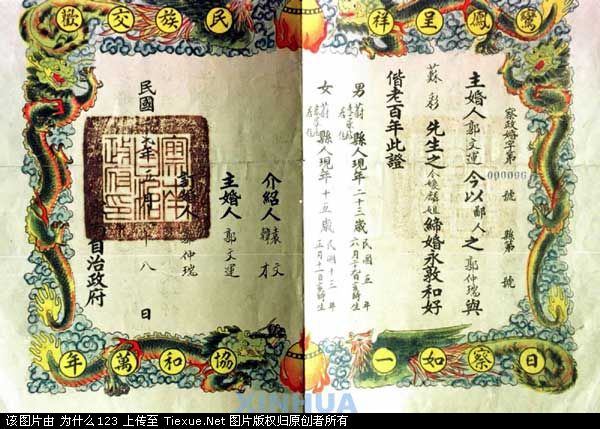 鸞鳳呈祥
民族交歡
日察如一
協和萬年
察政婚字第 號 縣第 號
000006
主婚人郭文運今以鄙人之郭仲瑰與
蘇彩先生之令嬡 姐締婚永敦和好
偕老百年此證
男蔚縣人現年二十三歲民國五年六月 生
女蔚縣人現年十五歲民國十三年五月十一日 生
介紹人袁文
韓才
主婚人郭文運
訂婚人郭仲瑰
自治政府
民國 年 月十八日
XINHUA
该图片由 为什么123 上传至 Tiexue.Net 图片版权归原创者所有